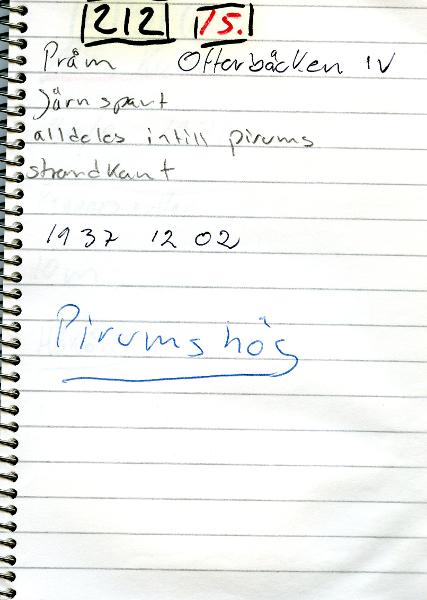 212 15.
Pråm Otterbäcken IV
Järnspant
alldeles intill pirums
strandkant
1937 12 02
Pirums hög